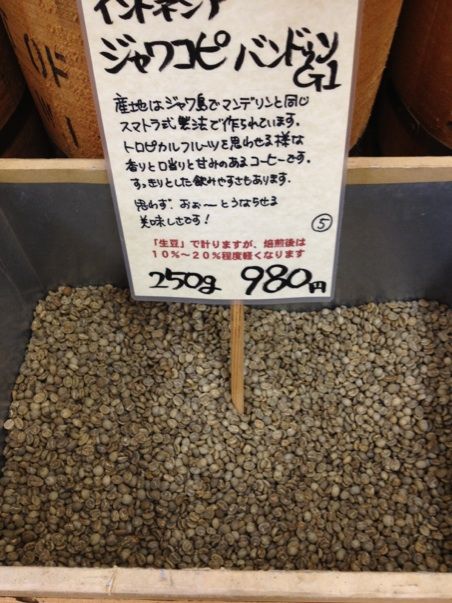 インドネシア
ジャワコピ バンドゥン
G1
産地はジャワ島でマンデリンと同じ
スマトラ式製法で作られています。
トロピカルフルーツを思わせる様な
香りと口当りと甘みのあるコーヒーです。
すっきりとした飲みやすさもあります。
思わず、おぉ〜とうならせる
美味しさです!
⑤
「生豆」で計りますが、焙煎後は
10%〜20%程度軽くなります
250g 980円
OF